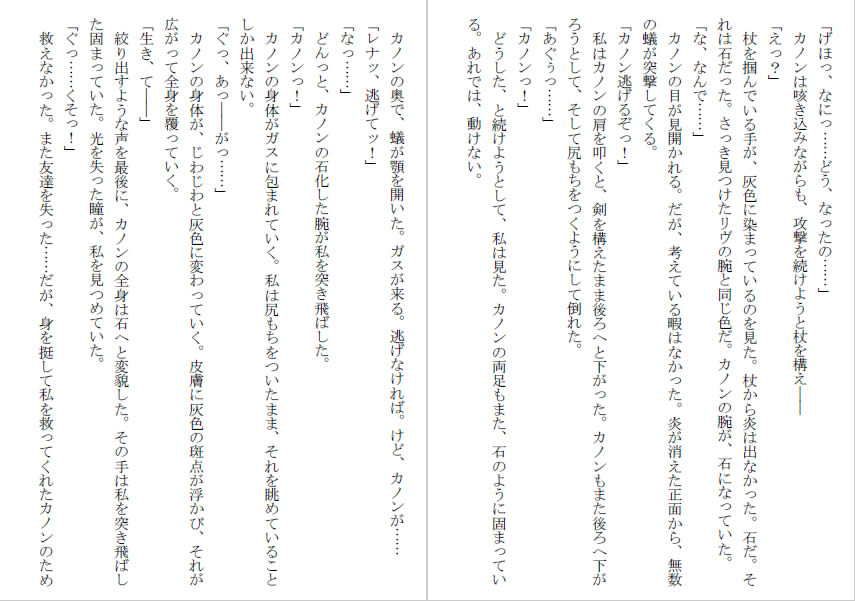 「げほっ、なにっ……どう、なったの……」
　カノンは咳き込みながらも、攻撃を続けようと杖を構え――
「えっ？」
　杖を掴んでいる手が、灰色に染まっているのを見た。杖から炎は出なかった。石だ。そ
れは石だった。さっき見つけたリヴの腕と同じ色だ。カノンの腕が、石になっていた。
「な、なんで……」
　カノンの目が見開かれる。だが、考えている暇はなかった。炎が消えた正面から、無数
の蟻が突撃してくる。
「カノン逃げるぞっ！」
　私はカノンの肩を叩くと、剣を構えたまま後ろへと下がった。カノンもまた後ろへ下が
ろうとして、そして尻もちをつくようにして倒れた。
「あぐぅっ……」
「カノンっ！」
　どうした、と続けようとして、私は見た。カノンの両足もまた、石のように固まってい
る。あれでは、動けない。
　カノンの奥で、蟻が顎を開いた。ガスが来る。逃げなければ。けど、カノンが……
「レナッ、逃げてッ！」
「なっ……」
　どんっと、カノンの石化した腕が私を突き飛ばした。
「カノンっ！」
　カノンの身体がガスに包まれていく。私は尻もちをついたまま、それを眺めていること
しか出来ない。
「ぐっ、あっ――がっ……」
　カノンの身体が、じわじわと灰色に変わっていく。皮膚に灰色の斑点が浮かび、それが
広がって全身を覆っていく。
「生き、て――」
　絞り出すような声を最後に、カノンの全身は石へと変貌した。その手は私を突き飛ばし
た固まっていた。光を失った瞳が、私を見つめていた。
「ぐっ……くそっ！」
　救えなかった。また友達を失った……だが、身を挺して私を救ってくれたカノンのため